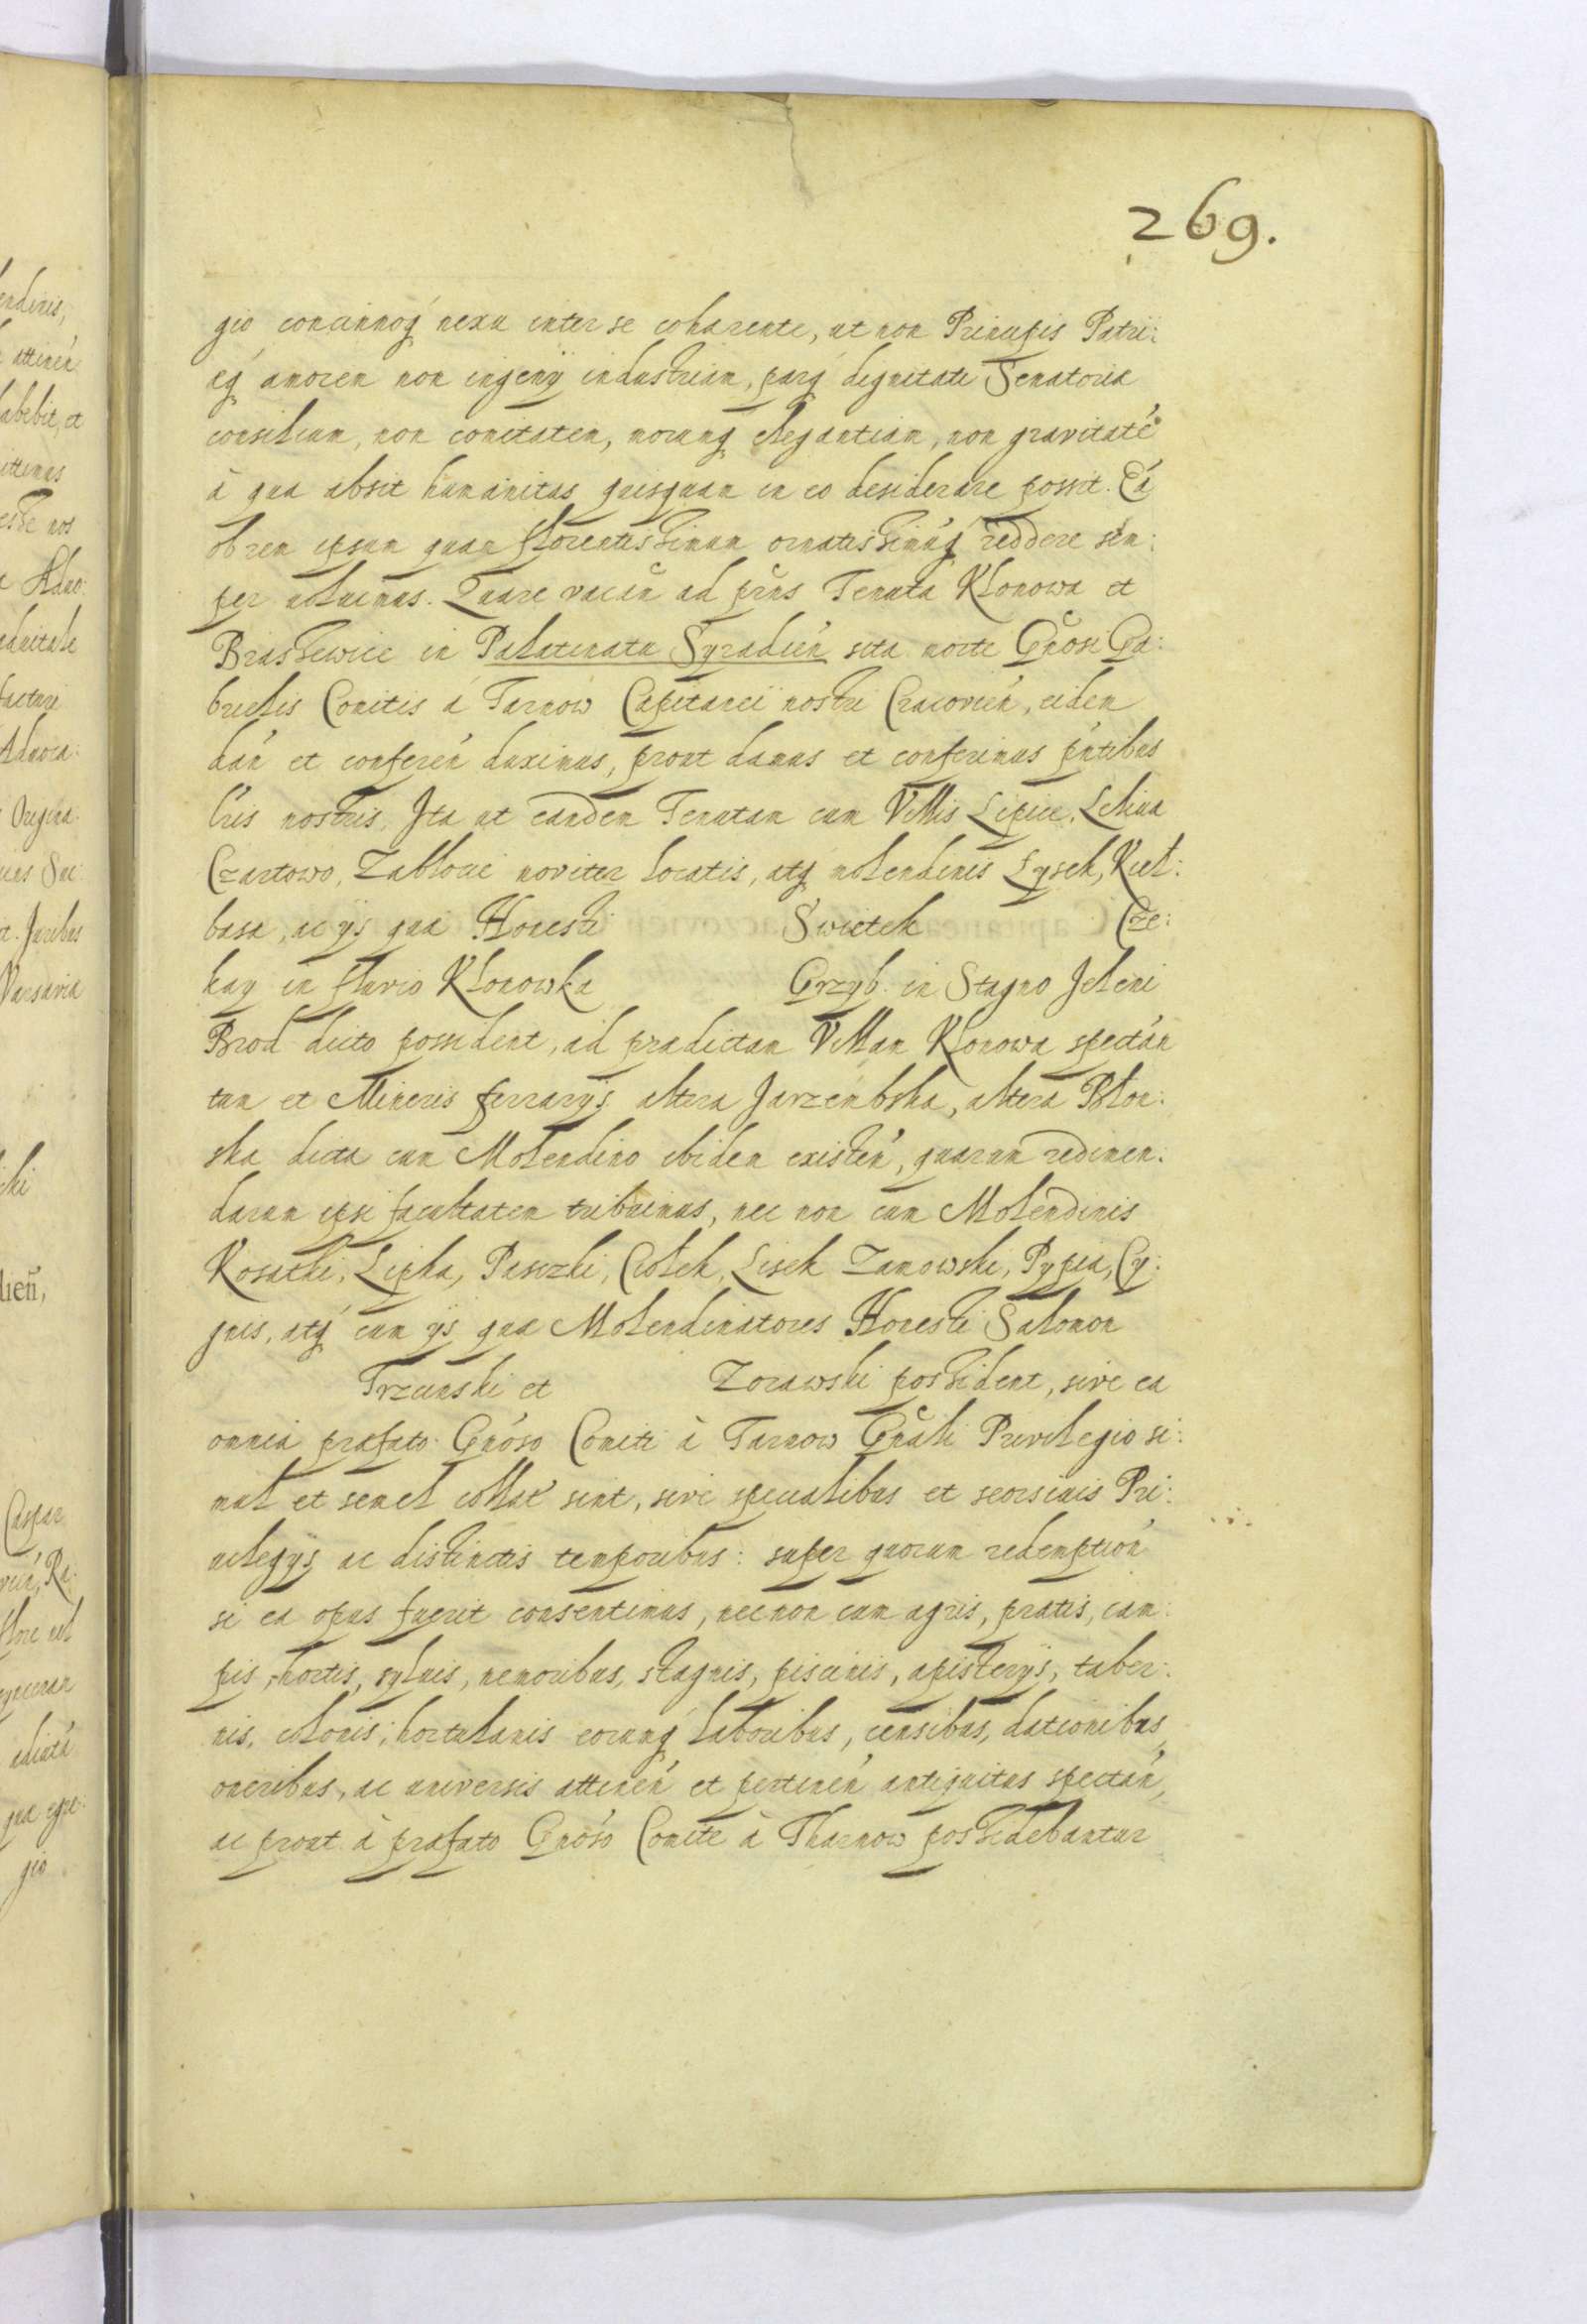 269.
gio concinnoq́ nexu inter se cohærente, ut non Principis Patri:
ęq́ amorem non ingenÿ industriam, parq́ dignitati Senatoriæ
consilium, non comitatem, morumq́ elegantiam, non gravitatē
à qua absit humanitas quisquam in eo desiderare possit. Eá
ob rem ipsum quam florentissimum ornatissimuq́ reddere sem:
per uoluimus. Quare vacuā ad prn̄s Tenuta Klonowa et
Braszewice in Palatinatu Syradień sita morte Gn̄osi Ga:
brielis Comitis á Tarnow Capitanei nostri Cracovień, eidem
dań et confereń duximus, prout damus et conferimus pn̄tibus
lr̄is nostris. Ita ut eandem Tenutam cum Villis Lipice, Leliwa
Czartowo, Zablocie noviter locatis, atq́ molendinis Lysek, Kieł:
basa, ac ÿs quæ Honesti Swietek Cze:
kay in fluvio Klonowka Grzyb. in Stagno Jeleni
Brod dicto possident, ad prædictam Villam Klonowa spectań
tum et Mineris ferrarÿs altera Jarzembska, altera Płon:
ska dicta cum Molendino ibidem existeń, quarum redimen:
darum ipsi facultatem tribuimus, nec non cum Molendinis
Kosatki, Lipka, Pasczki, Ciołek, Lisek Zamowski, Pypia, Cy:
gnis, atq́ cum ÿs quæ Molendinatores Honesti Salomon
Trzcinski et Zorawski possident, sive ea
omnia præfato Gnóso Comiti à Tarnow Gn̄ali Privilegio si:
mul et semel collat́ sint, sive specialibus et seorsiuis Pri:
uilegÿs ac distinctis temporibus: super quorum redemptioń
si ea opus fuerit consentimus, necnon cum agris, pratis, cam:
pis, hortis, syluis, nemoribus, stagnis, piscinis, apisterÿs, taber:
nis, colonis, hortulanis eorumq́ laboribus, censibus, dationibus,
oneribus, ac universis attineń et pertineń antiquitus spectań,
ac prout à præfato Gnóso Comite à Tharnow possidebantur